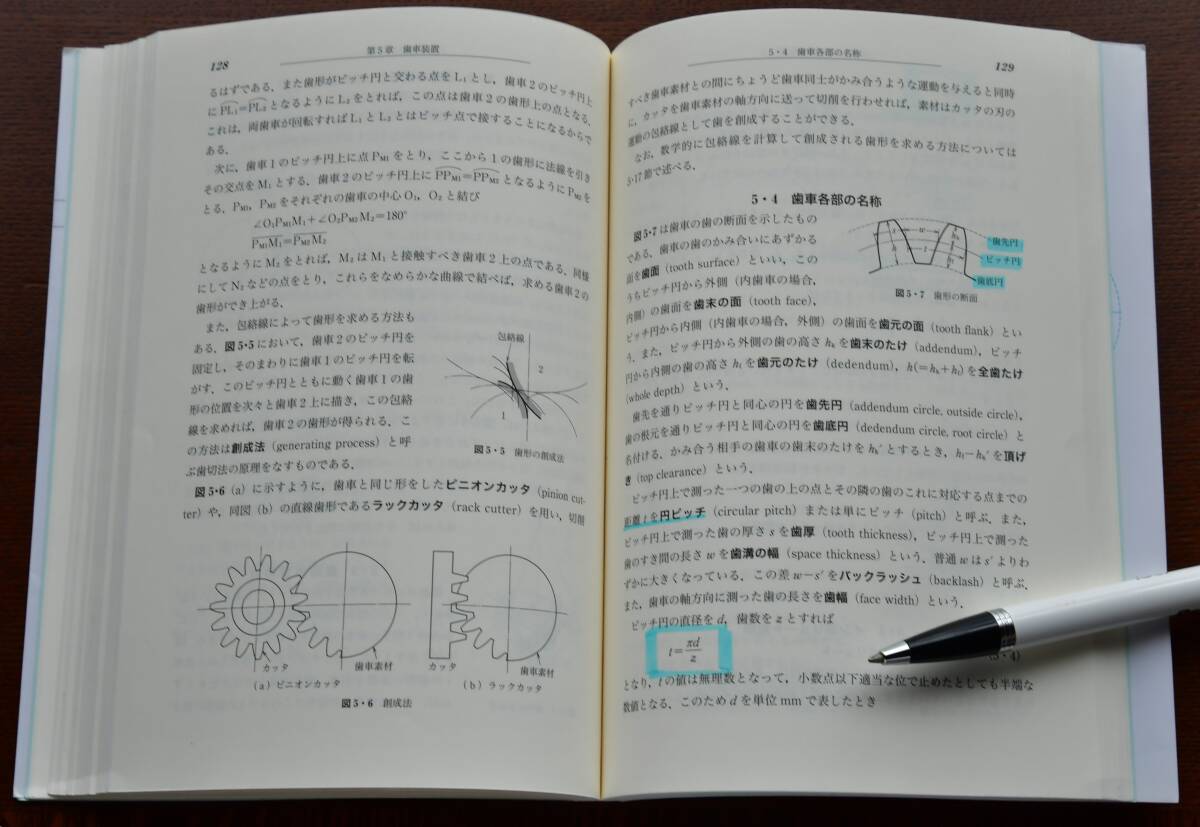 128
第5章 歯車装置
るはずである．また歯形がピッチ円と交わる点をL₁とし，歯車2のピッチ円上
にPL₁=PL₂となるようにL₂をとれば，この点は歯車2の歯形上の点となる．
これは，両歯車が回転すればL₁とL₂とはピッチ点で接することになるからで
ある．
次に，歯車1のピッチ円上に点PM1をとり，ここから1の歯形に法線を引き
その交点をM₁とする．歯車2のピッチ円上にPPM1=PPM2となるようにPM2を
とる．PM1，PM2をそれぞれの歯車の中心O₁，O₂と結び
∠O₁PM1M₁+∠O₂PM2M₂=180°
PM1M₁=PM2M₂
となるようにM₂をとれば，M₂はM₁と接触すべき歯車2上の点である．同様
にしてN₂などの点をとり，これらをなめらかな曲線で結べば，求める歯車2の
歯形ができ上がる．
また，包絡線によって歯形を求める方法も
ある．図5・5において，歯車2のピッチ円を
固定し，そのまわりに歯車1のピッチ円を転
がす．このピッチ円とともに動く歯車1の歯
形の位置を次々と歯車2上に描き，この包絡
線を求めれば，歯車2の歯形が得られる．こ
の方法は創成法（generating process）と呼
ぶ歯切法の原理をなすものである．
包絡線
2
1
図5・5 歯形の創成法
図5・6（a）に示すように，歯車と同じ形をしたピニオンカッタ（pinion cut-
ter）や，同図（b）の直線歯形であるラックカッタ（rack cutter）を用い，切削
カッタ
歯車素材
カッタ
歯車素材
（a）ピニオンカッタ
（b）ラックカッタ
図5・6 創成法
5・4 歯車各部の名称
129
すべき歯車素材との間にちょうど歯車同士がかみ合うような運動を与えると同時
に，カッタを歯車素材の軸方向に送って切削を行わせれば，素材はカッタの刃の
運動の包絡線として歯を創成することができる．
なお，数学的に包絡線を計算して創成される歯形を求める方法については
5・17節で述べる．
5・4 歯車各部の名称
図5・7は歯車の歯の断面を示したもの
である．歯車の歯のかみ合いにあずかる
面を歯面（tooth surface）といい，この
うちピッチ円から外側（内歯車の場合，
内側）の歯面を歯末の面（tooth face），
s
w
t
h
歯先円
ピッチ円
歯底円
図5・7 歯形の断面
ピッチ円から内側（内歯車の場合，外側）の歯面を歯元の面（tooth flank）とい
う．また，ピッチ円から外側の歯の高さhkを歯末のたけ（addendum），ピッチ
円から内側の歯の高さhfを歯元のたけ（dedendum），h(=hk+hf)を全歯たけ
（whole depth）という．
歯先を通りピッチ円と同心の円を歯先円（addendum circle, outside circle），
歯の根元を通りピッチ円と同心の円を歯底円（dedendum circle, root circle）と
名付ける．かみ合う相手の歯車の歯末のたけをhk′とするとき，hf−hk′を頂げ
き（top clearance）という．
ピッチ円上で測った一つの歯の上の点とその隣の歯のこれに対応する点までの
距離tを円ピッチ（circular pitch）または単にピッチ（pitch）と呼ぶ．また，
ピッチ円上で測った歯の厚さsを歯厚（tooth thickness），ピッチ円上で測った
歯のすき間の長さwを歯溝の幅（space thickness）という．普通wはs′よりわ
ずかに大きくなっている．この差w−s′をバックラッシュ（backlash）と呼ぶ．
また，歯車の軸方向に測った歯の長さを歯幅（face width）という．
ピッチ円の直径をd，歯数をzとすれば
t=πd/z
(5・4)
となり，tの値は無理数となって，小数点以下適当な位で止めたとしても半端な
数値となる．このためdを単位mmで表したとき